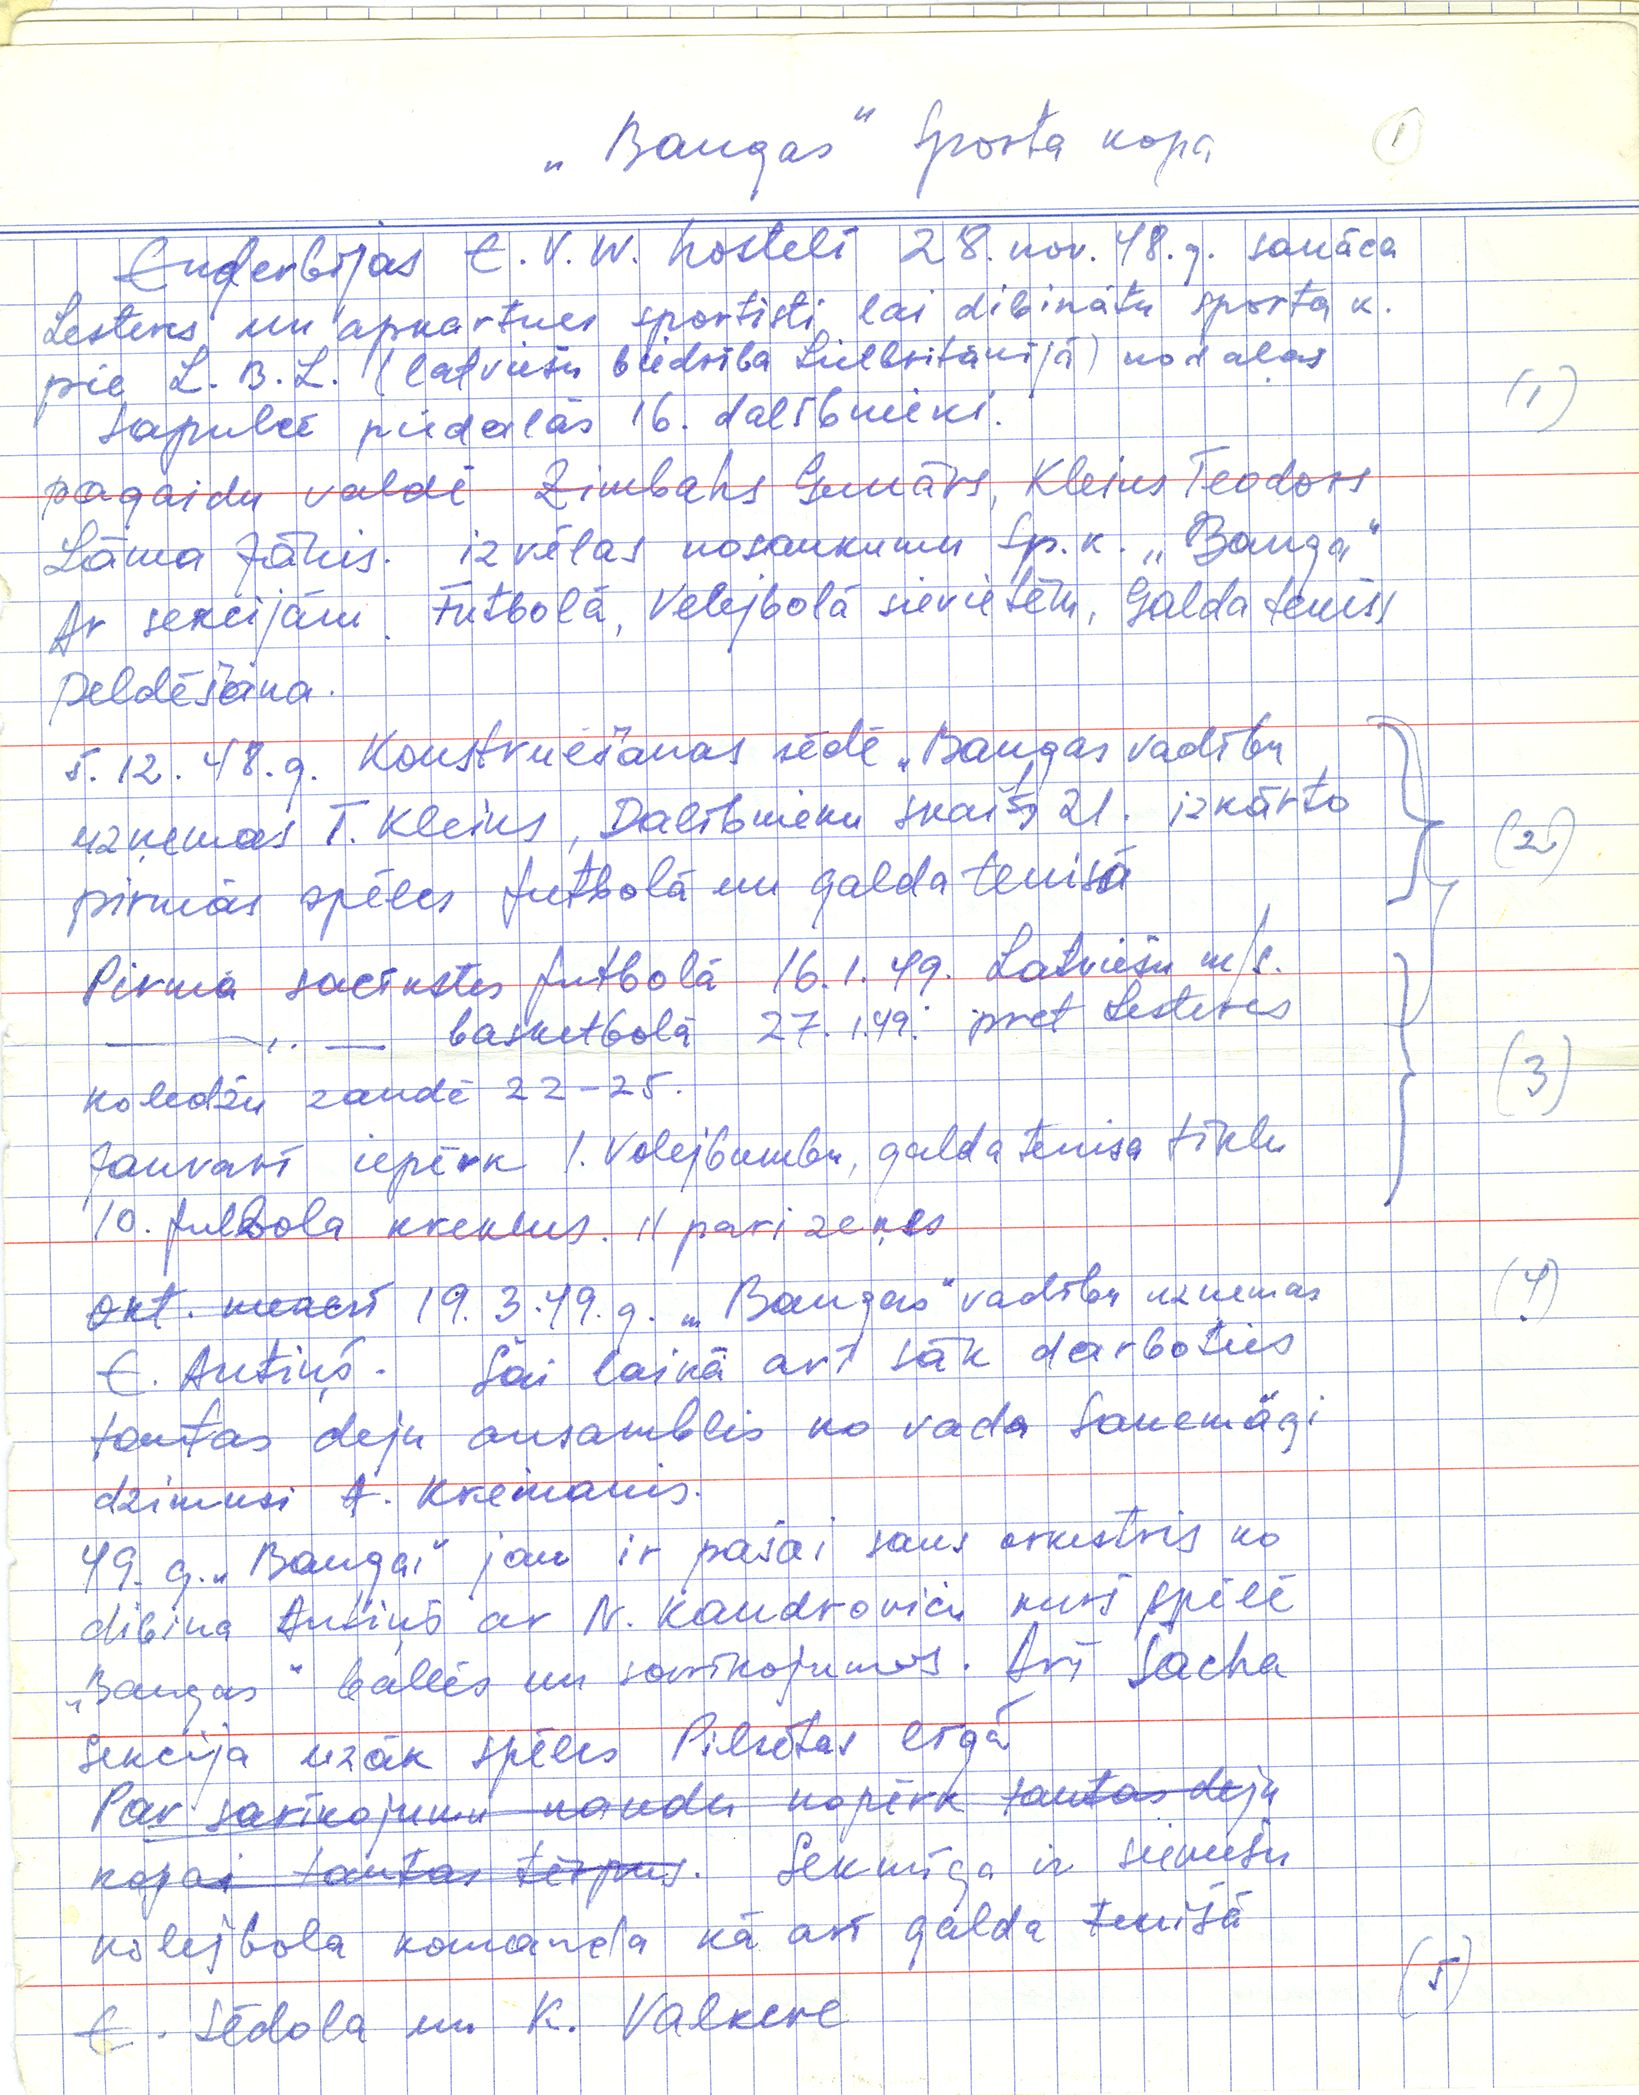 „Bangas" Sporta kopa
1
Enderbijas E.V.W. hostelī 28. nov. 48. g. sanāca
Lesteras un apkārtnes sportisti lai dibinātu sporta k.
pie L.B.L. (latviešu biedrība Lielbritānijā) nodaļas
(1)
Sapulcē piedalās 16. dalībnieki.
pagaidu valdē Zimbahs Gunārs, Kleins Teodors
Lāma Jānis. izvēlas nosaukumu Sp. k. „Banga"
Ar sekcijām. Futbolā, Volejbolā sievietēm, Galda teniss
Peldēšana.
5.12.48.g. Konstruēšanas sēdē „Bangas vadību
uzņemas T. Kleins, Dalībnieku skaits 21. izkārto
(2)
pirmās spēles futbolā un galda tenisā
Pirmā sacīkstes futbolā 16.1.49. Latviešu m/s.
— „ — basketbolā 27.1.49. pret Lesteres
koledžu zaudē 22-25.
(3)
Janvarī iepērk 1. Volejbumbu, galda tenisa tīklu
10. futbola kreklus. 11 pari zeķes
okt. menesī 19.3.49.g. „Bangas" vadību uzņemas
(4)
E. Antiņš. Šai laikā arī sāk darboties
tautas deju ansamblis ko vada Sanemägi
dzimusi A. Kreimanis.
49. g. „Bangai" jau ir pašai savs orkestris ko
dibina Antiņš ar N. Kandroviču kurš spēlē
„Bangas" ballēs un sarīkojumos. Arī šacha
sekcija uzāk spēles Pilsētas līgā
Par sarīkojumu naudu nopērk tautas deju
kopai tautas tērpus. Sekmīga ir sieviešu
volejbola komanda kā arī galda tenisā
(5)
E. Sēdola un K. Valkere